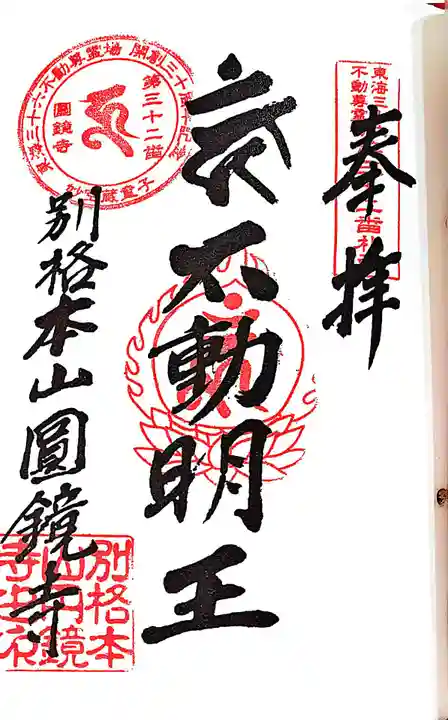 奉拝
東海三
不動尊霊
不動明王
別格本山圓鏡寺
東海三十六不動尊霊場 開創三十周年記念
第三十二番
圓鏡寺
別格本
山円鏡
寺